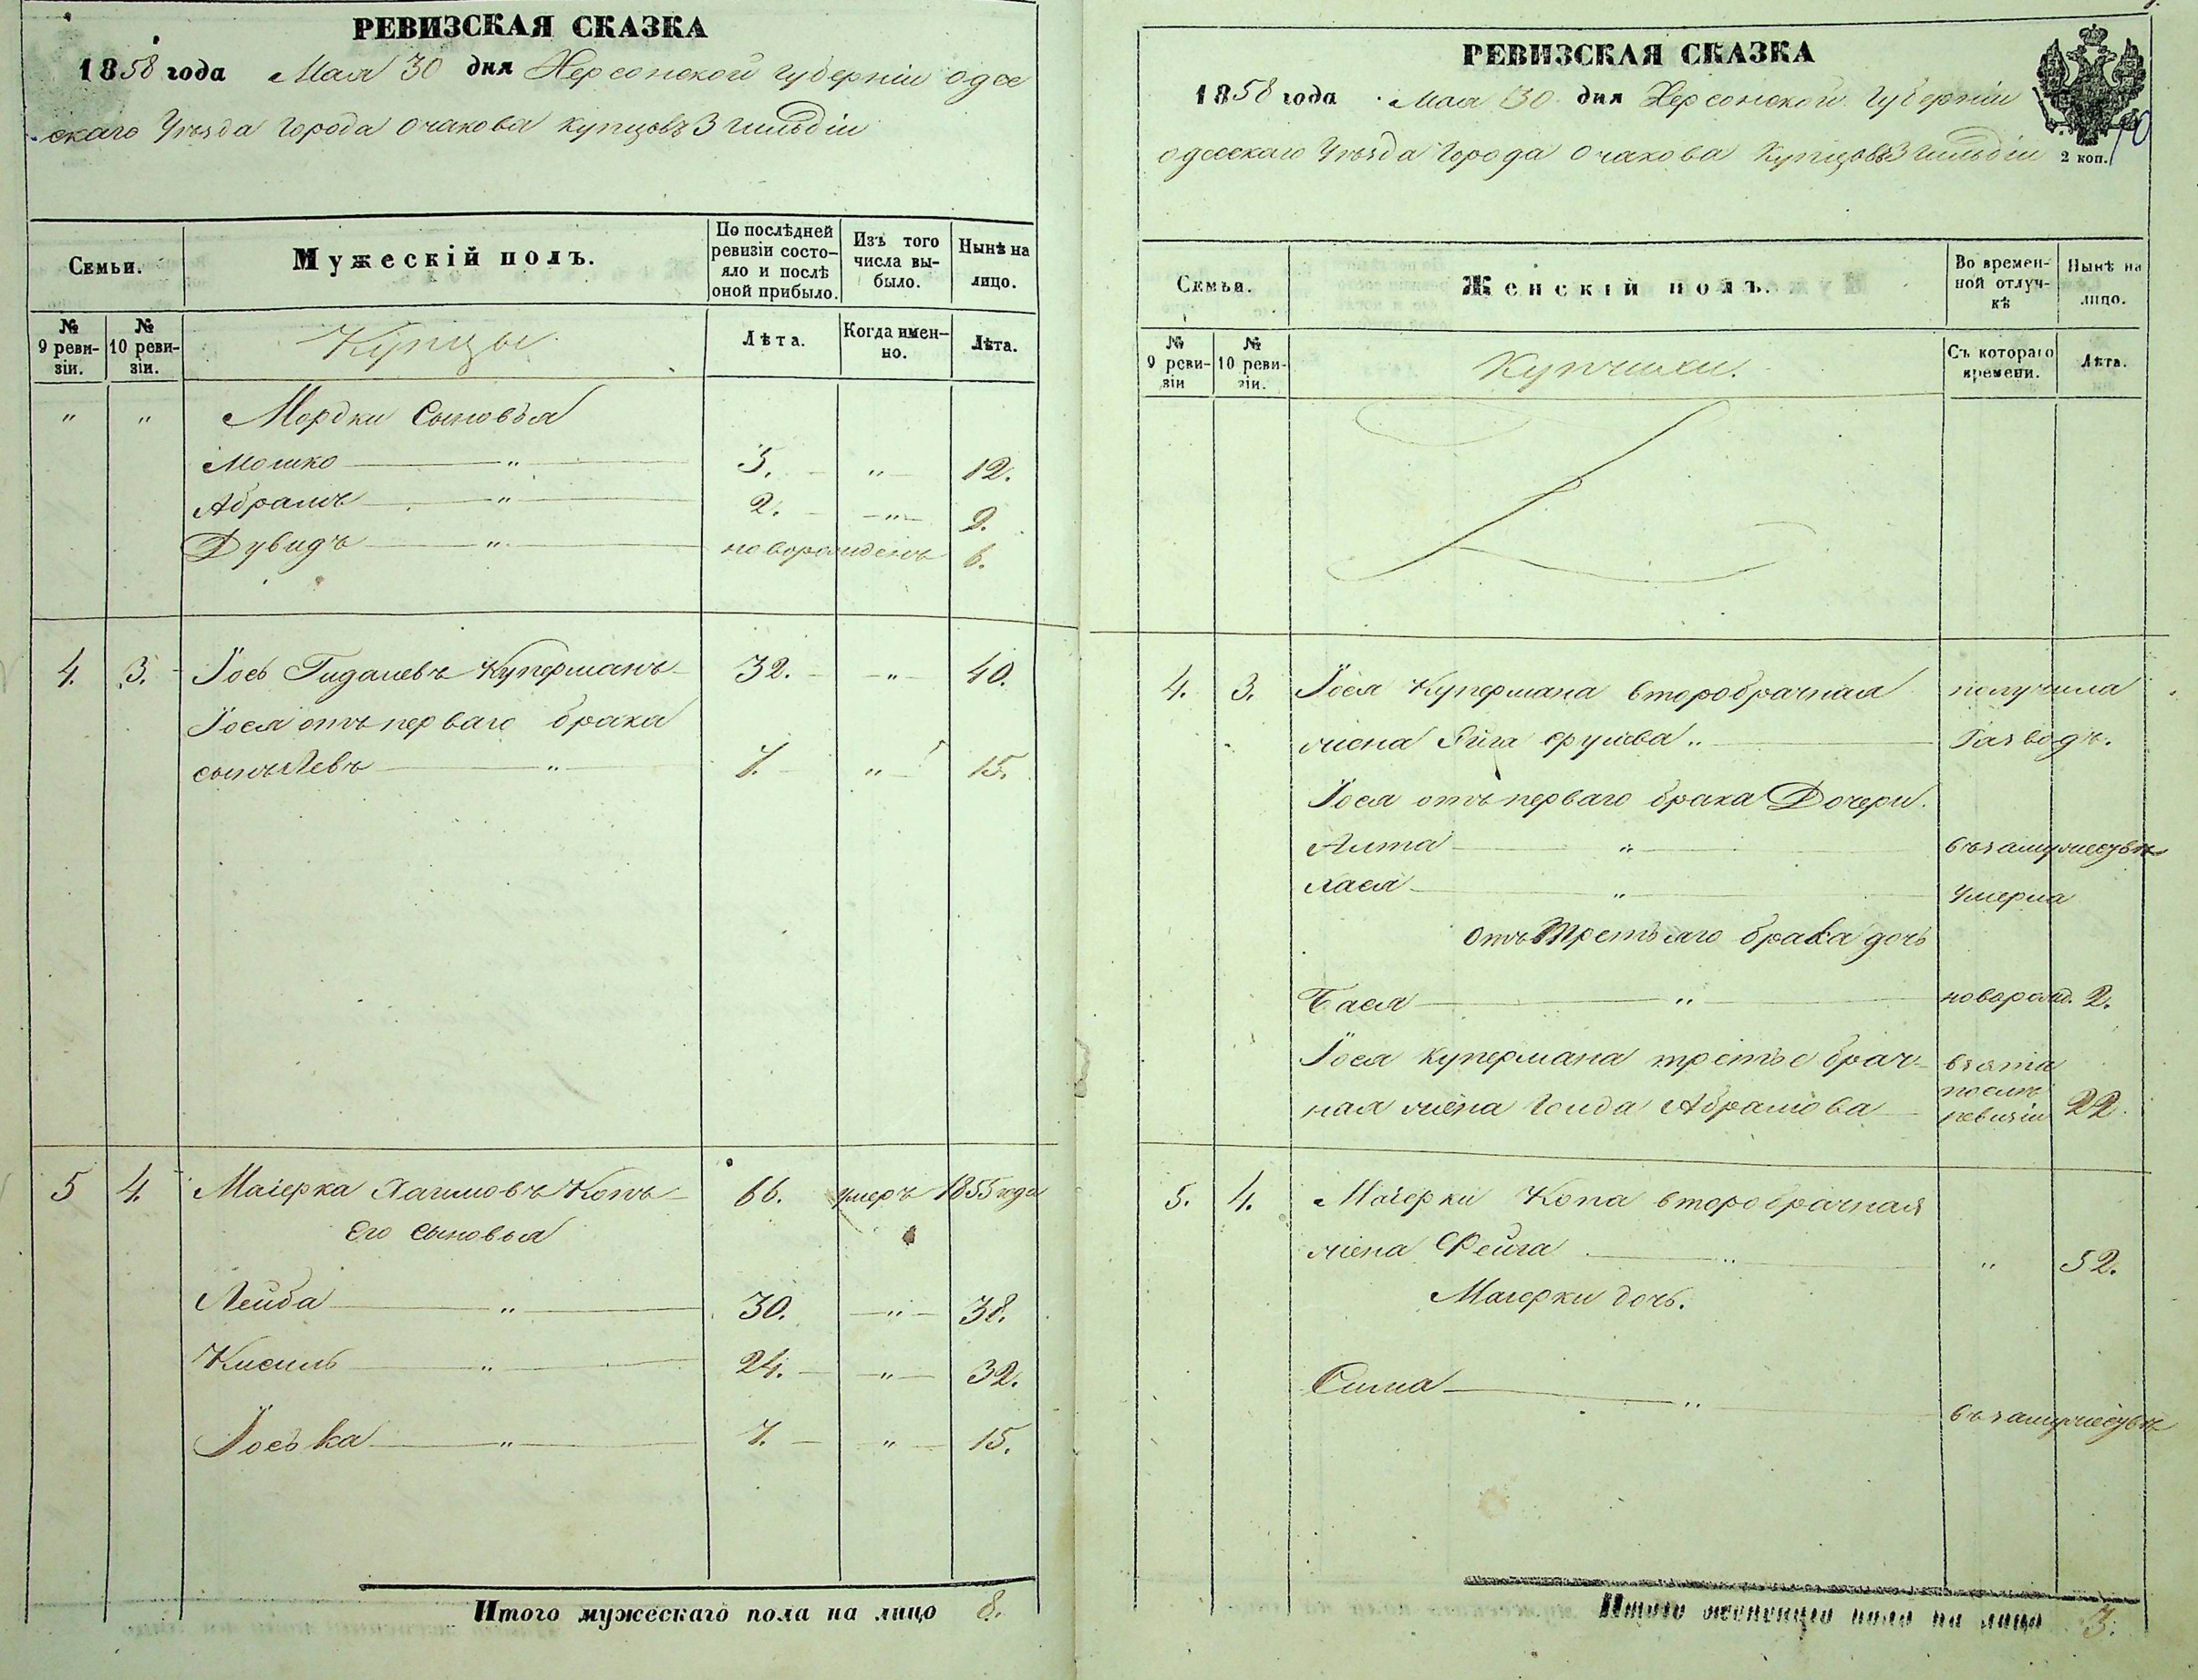 РЕВИЗСКАЯ СКАЗКА
1858 года Мая 30 дня Херсонской губернiи одес
скаго Уѣзда города Очакова купцовъ 3 гильдiи
Семьи.
Мужескiй полъ.
По послѣдней ревизiи состояло и послѣ оной прибыло.
Изъ того числа выбыло.
Нынѣ на лицо.
№ 9 ревизiи.
№ 10 ревизiи.
Купцы.
Лѣта.
Когда именно.
Лѣта.
" " Мордки Сыновья
Мошко " 5. " 12.
Абрамъ " 2. " 9.
Дувидъ " новорожденъ 6.
4. 3. Іось Гидалевъ Куперманъ 32. " 40.
Іося отъ перваго брака
сынъ Левъ " 7. " 15.
5 4. Маіерка Хаимовъ Копъ 66. умеръ 1855 года
Его сыновья
Лейба " 30. " 38.
Кисиль " 24. " 32.
Іоська " 7. " 15.
Итого мужескаго пола на лицо 8.
РЕВИЗСКАЯ СКАЗКА
1858 года Мая 30 дня Херсонской Губернiи
одесскаго Уѣзда города Очакова Купцовъ 3 гильдiи
2 коп.
Семьи.
Женскiй полъ.
Во временной отлучкѣ
Нынѣ на лицо.
№ 9 ревизiи
№ 10 ревизiи.
Купчихи.
Съ котораго времени.
Лѣта.
4. 3. Іося Купермана второбрачная получила
жена " Разводъ.
Іося отъ перваго брака Дочери.
Алта " въ замужествѣ
Хася " Умерла
отъ Третьяго брака дочь
Бася " новорожд. 2.
Іося Купермана третьебрач- взята
послѣ
ная жена Голда Абрамова ревизiи 22.
5. 4. Маіерки Копа второбрачная
жена Фейга " " 52.
Маіерки дочь.
Сима "
въ замужествѣ
Итого женскаго пола на лицо 3.